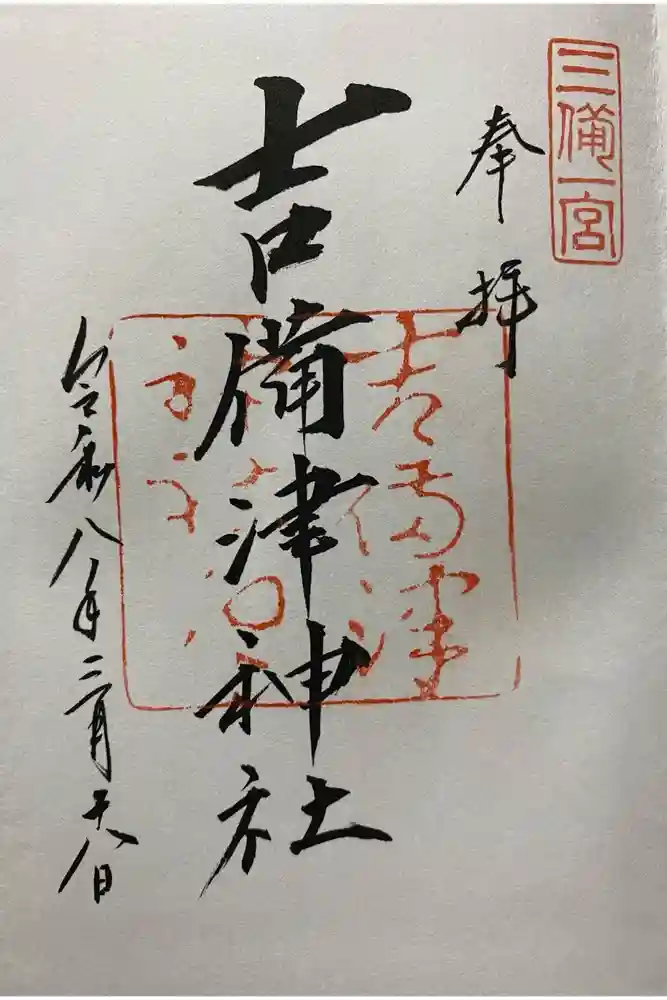 三備一宮
奉拝
吉備津神社
吉備津
令和八年二月八日